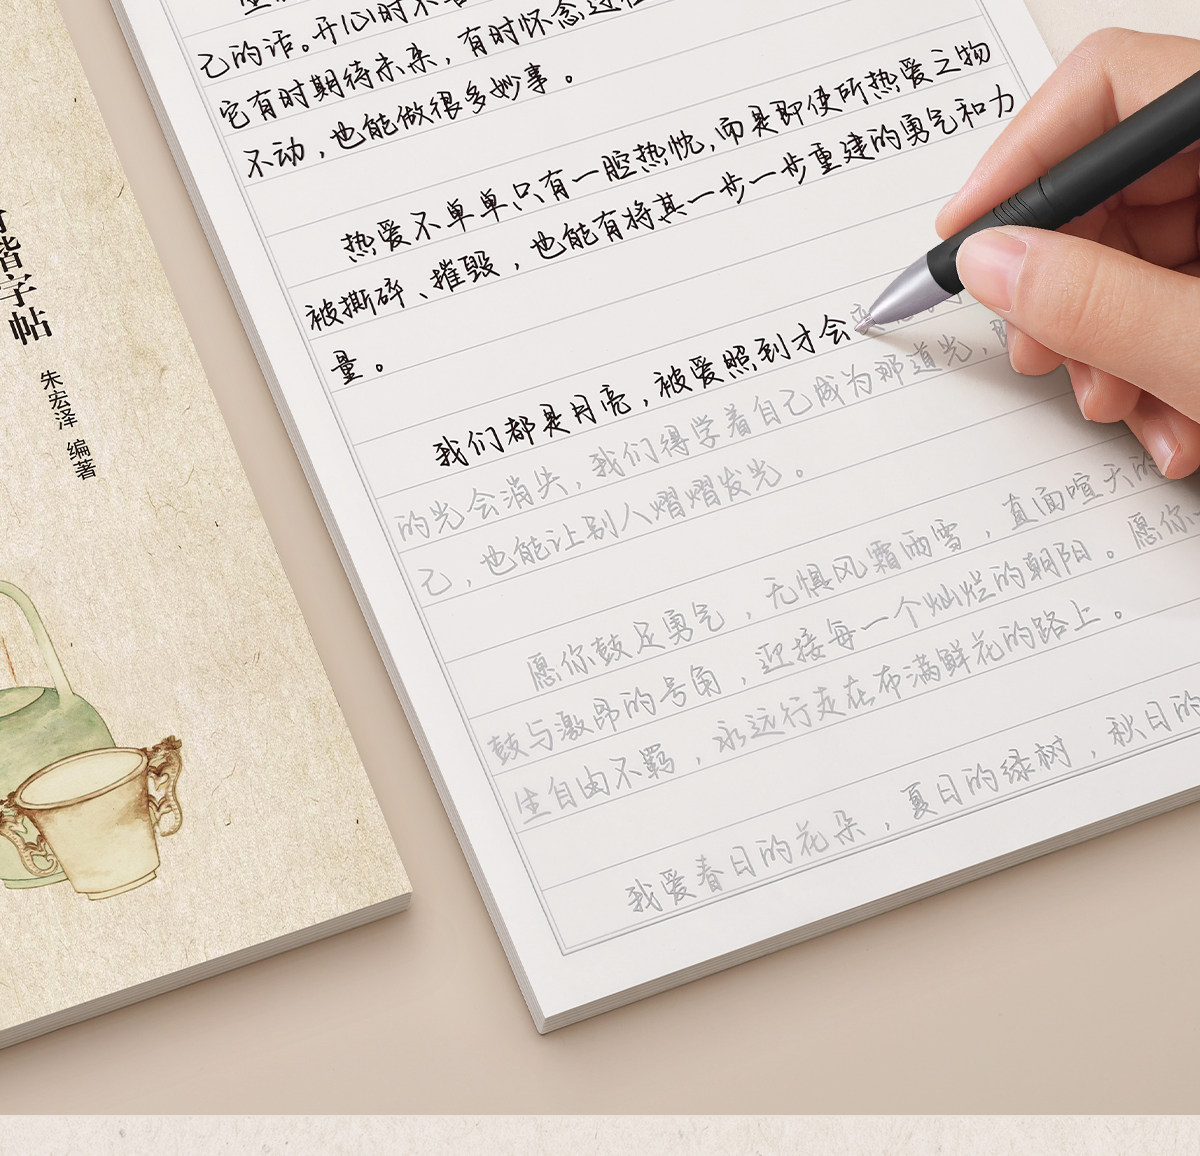 己的话。开心时不
它有时期待未来，有时怀念过往
不动，也能做很多妙事。
热爱不单单只有一腔热忱，而是即使所热爱之物
被撕碎、摧毁，也能有将其一步一步重建的勇气和力
量。
我们都是月亮，被爱照到才会
的光会消失，我们得学着自己成为那道光，
己，也能让别人熠熠发光。
愿你鼓足勇气，无惧风霜雨雪，直面喧天的
鼓与激昂的号角，迎接每一个灿烂的朝阳。愿你
生自由不羁，永远行走在布满鲜花的路上。
我爱春日的花朵，夏日的绿树，秋日的
楷字帖
朱宏泽 编著